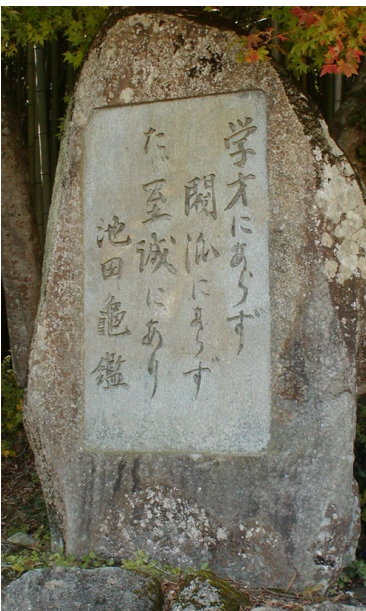 学才にあらず
閥派にあらず
たゞ至誠にあり
池田龜鑑